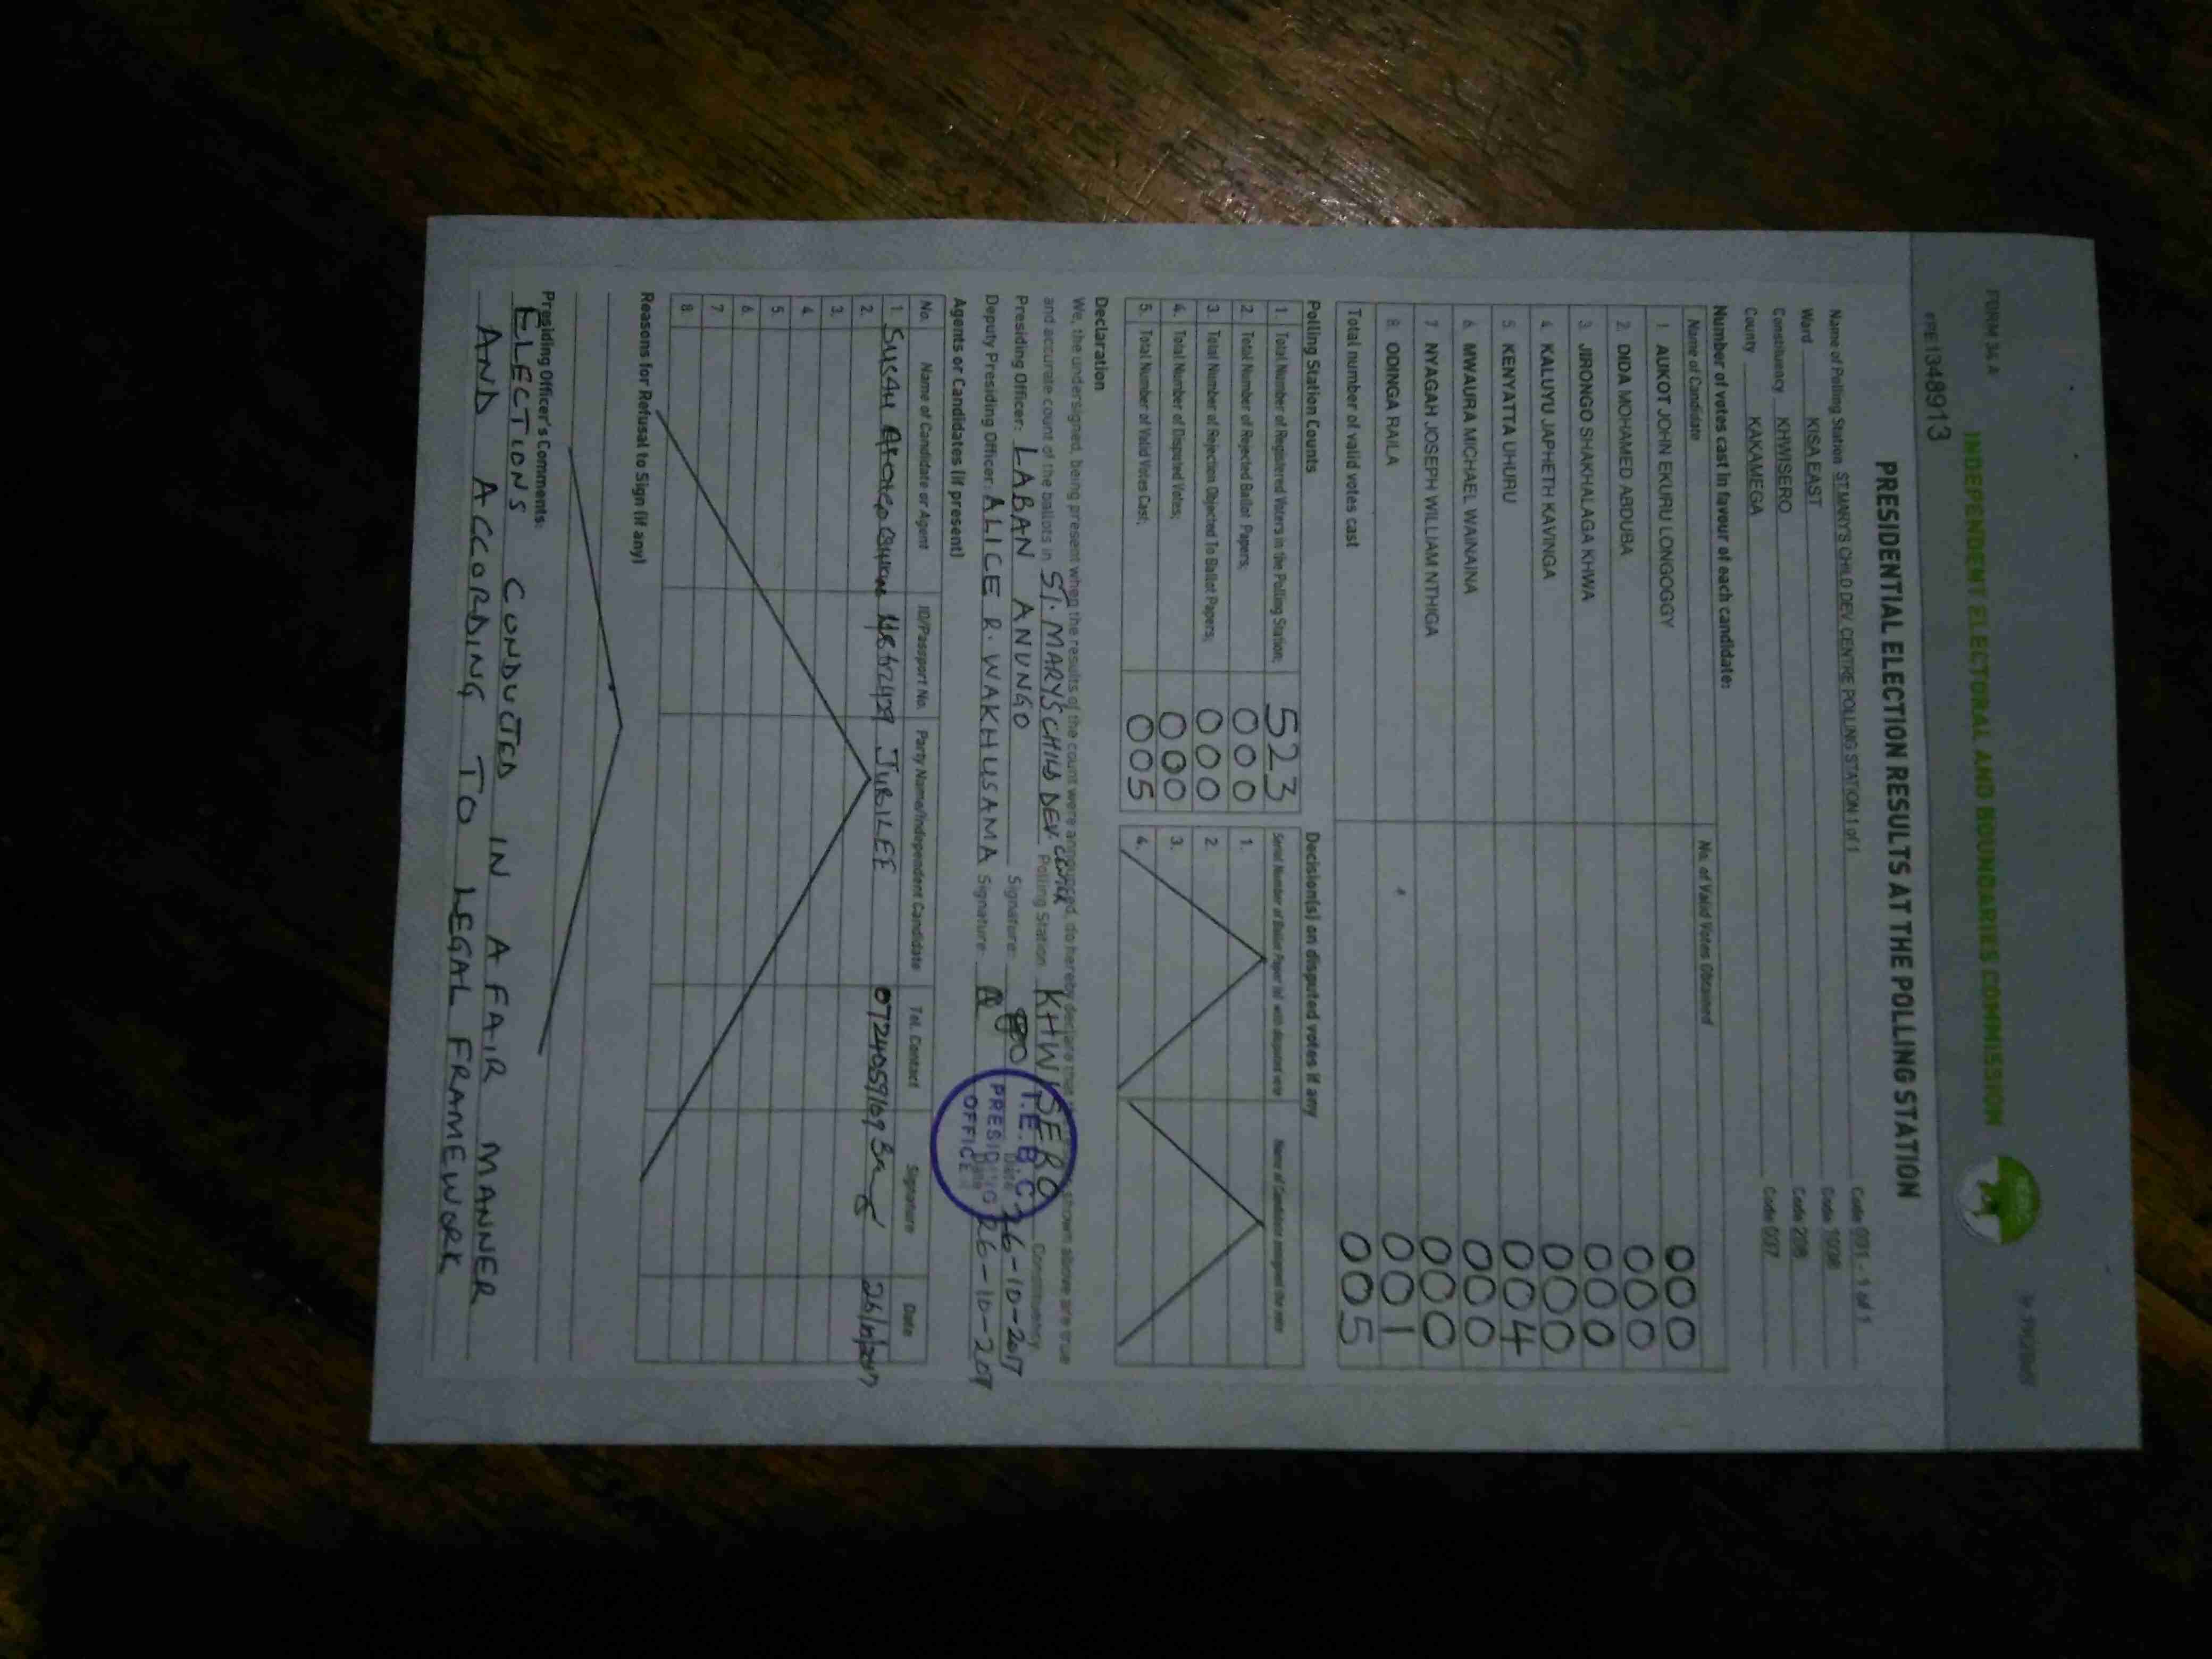 FORM 34A
INDEPENDENT ELECTORAL AND BOUNDARIES COMMISSION
PRE1348913
PRESIDENTIAL ELECTION RESULTS AT THE POLLING STATION
Name of Polling Station ST.MARY'S CHILD DEV. CENTRE POLLING STATION 1 of 1 Code 001 - 1 of 1
Ward KISA EAST Code
Constituency KHWISERO Code
County KAKAMEGA Code 037
Number of votes cast in favour of each candidate:
Name of Candidate No. of Valid Votes Obtained
1. AUKOT JOHN EKURU LONGOGGY 000
2. DIDA MOHAMED ABDUBA 000
3. JIRONGO SHAKHALAGA KHWA 000
4. KALUYU JAPHETH KAVINGA 000
5. KENYATTA UHURU 004
6. MWAURA MICHAEL WAINAINA 000
7. NYAGAH JOSEPH WILLIAM NTHIGA 000
8. ODINGA RAILA 001
Total number of valid votes cast 005
Polling Station Counts
1 Total Number of Registered Voters in the Polling Station; 523
2 Total Number of Rejected Ballot Papers; 000
3. Total Number of Rejection Objected To Ballot Papers; 000
4. Total Number of Disputed Votes; 000
5. Total Number of Valid Votes Cast; 005
Decision(s) on disputed votes if any
Serial Number of Ballot Paper (s) with disputed vote Name of Candidate assigned the vote
1.
2.
3.
4.
Declaration
We, the undersigned, being present when the results of the count were announced, do hereby declare that shown above are true
and accurate count of the ballots in ST. MARY'S CHILD DEV. CENTER Polling Station KHWISERO Constituency
Presiding Officer: LABAN ANUNGO Signature: Date 26-10-2017
Deputy Presiding Officer: ALICE R. WAKHUSAMA Signature: Date 26-10-2017
I.E.B.C
PRESIDING
OFFICER
Agents or Candidates (if present)
No. Name of Candidate or Agent ID/Passport No. Party Name/Independent Candidate Tel. Contact Signature Date
1. SUSAN JUBILEE
2.
3.
4.
5.
6.
7
8.
Reasons for Refusal to Sign (if any)
Presiding Officer's Comments:
ELECTIONS CONDUCTED IN A FAIR MANNER
AND ACCORDING TO LEGAL FRAMEWORK